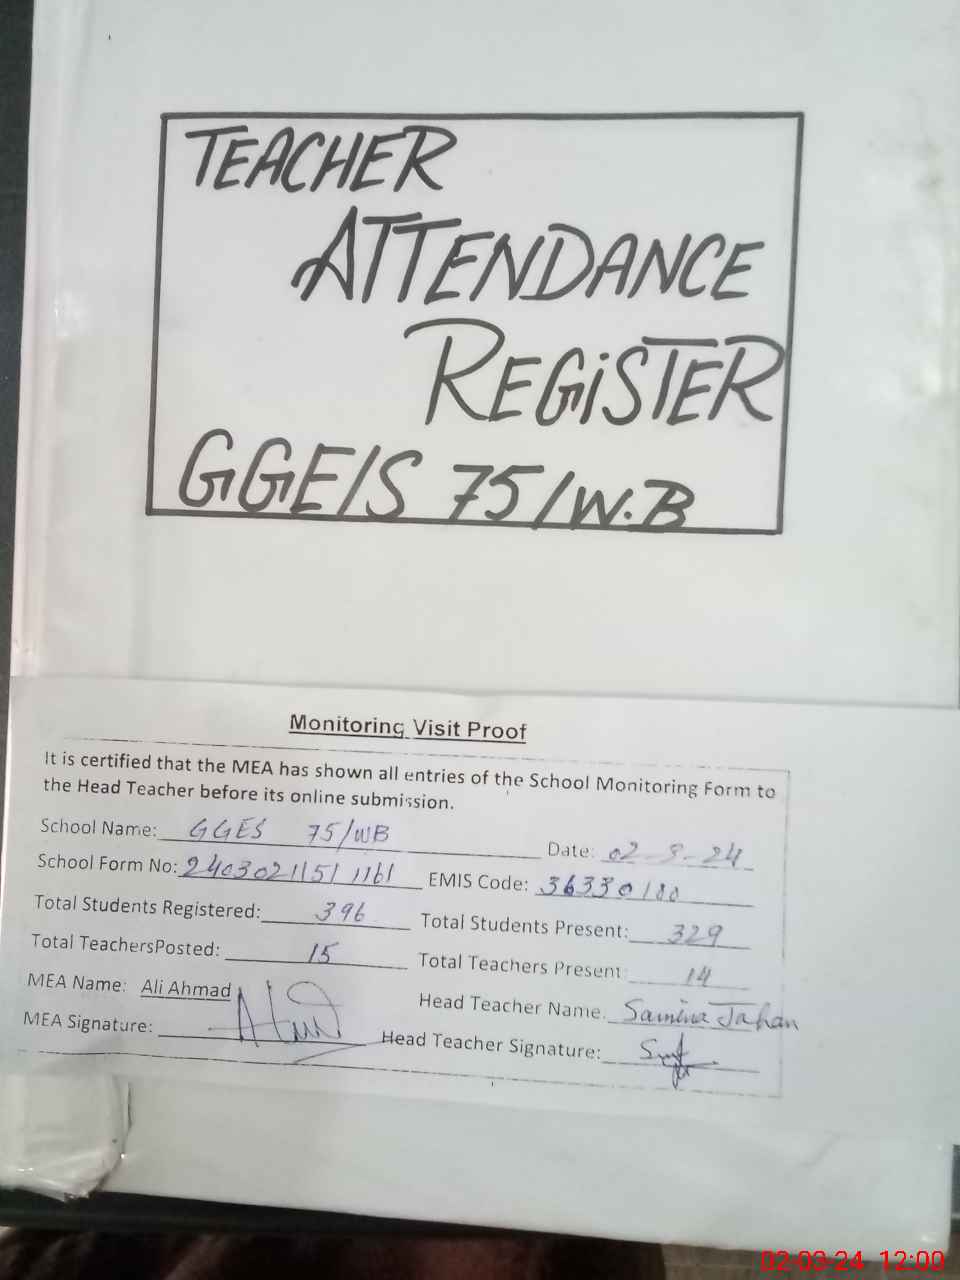 TEACHER
ATTENDANCE
REGISTER
GGE/S 75/W.B
Monitoring Visit Proof
It is certified that the MEA has shown all entries of the School Monitoring Form to
the Head Teacher before its online submission.
School Name: GGES 75/WB Date: 02-3-24
School Form No: 2403021151 1161 EMIS Code: 36330100
Total Students Registered: 396 Total Students Present: 329
Total TeachersPosted: 15 Total Teachers Present: 14
MEA Name: Ali Ahmad Head Teacher Name. Samina Jahan
MEA Signature: Head Teacher Signature:
02-03-24 12:00